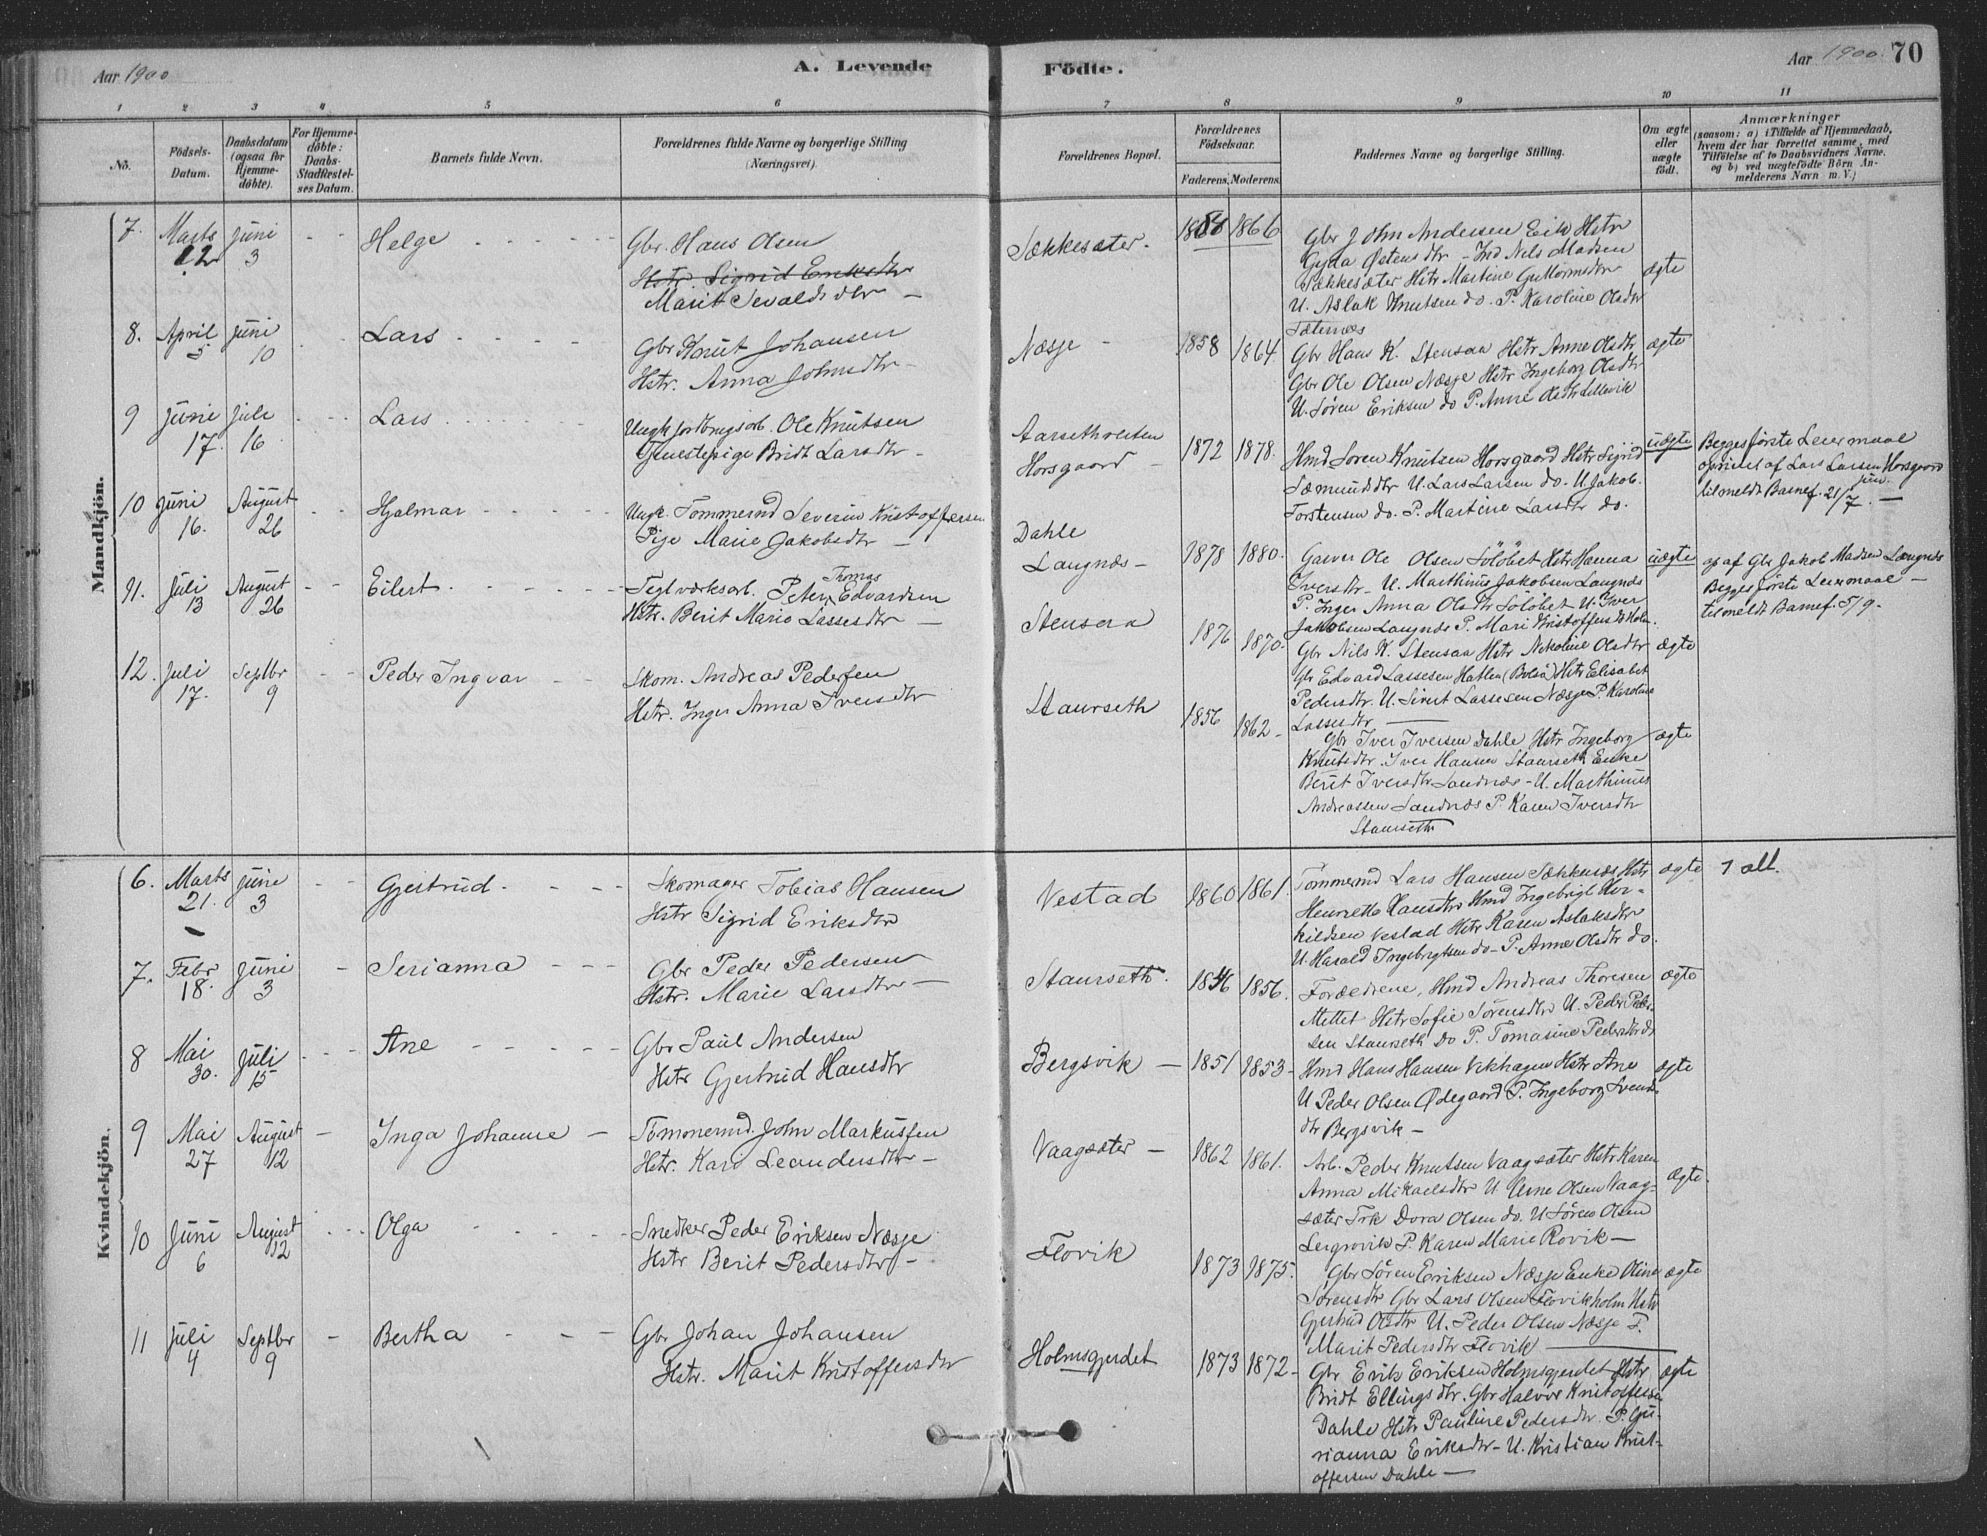 Aar 1900
A. Levende
Födte.
Aar 1900.
70
1 2 3 4 5 6 7 8 9 10 11
No.
Födsels-
Datum.
Daabsdatum
(ogsaa for
Hjemme-
döbte).
For Hjemme-
döbte:
Daabs-
Stadfæstel-
ses Datum.
Barnets fulde Navn.
Forældrenes fulde Navne og borgerlige Stilling
(Næringsvei).
Forældrenes Bopæl.
Forældrenes
Födselsaar.
Faderens.
Moderens.
Faddernes Navne og borgerlige Stilling.
Om ægte
eller
uægte
födt.
Anmærkninger
(saasom: a) i Tilfælde af Hjemmedaab,
hvem der har forrettet samme, med
Tilföielse af to Daabsvidners Navne,
og b) ved uægtefödte Börn An-
melderens Navn m. V.)
Mandkjön.
7. Marts Juni - - Helge - - - - -
12 3
Gbr. Hans Olsen
Hstr. Sigrid Eriksdtr
Marit Sevaldsdtr -
Sækkesæter. 1866
Gbr John Andersen Eik Hstr
Gyda Østensdtr - Ind Nils Madsen
Sækkesæter Hstr Martine Guttormsdtr
U. Aslak Knutsen do. P. Karoline Olsdtr
Sæternes
ægte
8. April Juni - - Lars - - - - -
5 10
Gbr Knut Johansen
Hstr. Anna Johnsdtr -
Næsje - 1858 1864
Gbr Hans K. Stensaa Hstr Anne Olsdtr
Gbr Ole Olsen Næsje Hstr Ingeborg Olsdtr
U. Søren Eriksen do P. Anne Olsdtr Lillevik
ægte
9 Junie Juli - - Lars - - - - -
17. 16
Ungk jordbrugsarb. Ole Knutsen
Tjenestepige Bridt Larsdtr -
Aarsethvesten
Horsgaard - 1872 1878.
Hmd Soren Knutsen Horsgaard Hstr Sigrid
Sæmundsdtr U. Lars Larsen do. U Jakob
Torstensen do. P. Martine Larsdtr do.
uægte
Begges første Leiermaal
opgivet af Lars Larsen Horsgaard
jun.
tilmeldt Barnef. 21/7. -
10 Juni August - - Hjalmar - - - - -
16. 26
Ungk. Tømmermd Severin Kristoffersen
Pige Marie Jakobsdtr -
Dahle
Langnæs - 1878 1880.
Garver Ole Olsen Søløbet Hstr Hanna
Iversdtr - U. Marthinus Jakobsen Langnæs
P. Inger Anna Olsdtr Søløbet U. Iver
Jakobsen Langnæs P. Mari Kristoffersdtr Holm.
uægte
op af Gbr Jakob Madsen Langnæs
Begges første Leiermaal -
tilmeldt Barnef. 5/9.
11. Juli August - - Eilert - - - - -
13 26
Teglværksarb. Peter Thomas Edvardsen
Hstr. Berit Marie Lassesdtr -
Stensera 1876 1870.
Gbr Nils K. Stensaa Hstr Nekoline Olsdtr
Gbr Edvard Lassesen Hatlen (Bolsø) Hstr Elisabet
Pedersdtr. U. Sivert Lassesen Næsje P. Karoline
Lassesdtr
ægte
12. Juli Septbr - - Peder Ingvar - -
17. 9
Skom. Andreas Pedersen
Hstr. Inger Anna Iversdtr
Staurseth 1856 1862 -
Gbr Iver Iversen Dahle Hstr Ingeborg
Knutsdtr. Iver Hansen Staurseth Enke
Berit Iversdtr Sandnæs - U. Marthinus
Andreassen Sandnæs P. Karen Iversdtr
Staurseth
ægte
Kvindekjön.
6. Marts Juni - - Gjertrud - - - -
21. 3
Skomager Tobias Hansen
Hstr Sigrid Eriksdtr
Vestad 1860 1861.
Tømmermd Lars Hansen Sækkenæs Hstr
Henriette Hansdtr Hmd Ingebrigt Tor-
kildsen Vestad Hstr Karen Aslaksdtr
U. Harald Ingebrigtsen do - P. Anne Olsdtr do.
ægte
1 alt.
7. Febr Juni - Serianna - - -
18. 3
Gbr Peder Pedersen
Hstr. Marie Larsdtr -
Staurseth. 1856.
Forældrene, Hmd Andreas Thoresen
Mittet Hstr Sofie Sørensdtr U. Peder Peder-
sen Staurseth do P. Tomasine Pedersdtr do
ægte
8 Mai Juli - - - Ane - - - - -
30. 15
Gbr Paul Andersen
Hstr Gjertrud Hansdtr
Bergsvik - 1851 1853 -
Hmd Hans Hansen Vikhagen Hstr Ane
U Peder Olsen Ødegaard P. Ingeborg Svends-
dtr Bergsvik -
ægte
9 Mai August - Inga Johanne -
27 12
Tømmermd. John Markussen
Hstr. Kari Leandersdtr -
Vaagsæter - 1862 1861.
Arb. Peder Knutsen Vaagsæter Hstr Karen
Anna Mikaelsdtr U Arne Olsen Vaag-
sæter Frk Dora Olsen do. U Søren Olsen
Lergrovik P. Karen Marie Rovik -
Ægte.
10 Juni August - - - Olga - - - -
6 12
Snedker Peder Eriksen Næsje
Hstr Berit Pedersdtr -
Flovik 1873 1875.
Gbr Søren Eriksen Næsje Enke Oline
Sørensdtr Gbr Lars Olsen Flovikholm Hstr
Gjertrud Olsdtr U. Peder Olsen Næsje P.
Marit Pedersdtr Flovik
ægte
11 Juli Septbr - Bertha - - -
4 9
Gbr Johan Johansen
Hstr. Marit Kristoffersdtr
Holmsgjerdet 1873 1872 -
Gbr Erik Eriksen Holmsgjerdet Hstr
Bridt Ellingsdtr. Gbr Halvor Kristoffersen
Dahle Hstr Pauline Pedersdtr. P. Gu-
rianna Eriksdtr - U. Kristian Krist-
offersen Dahle -
ægte